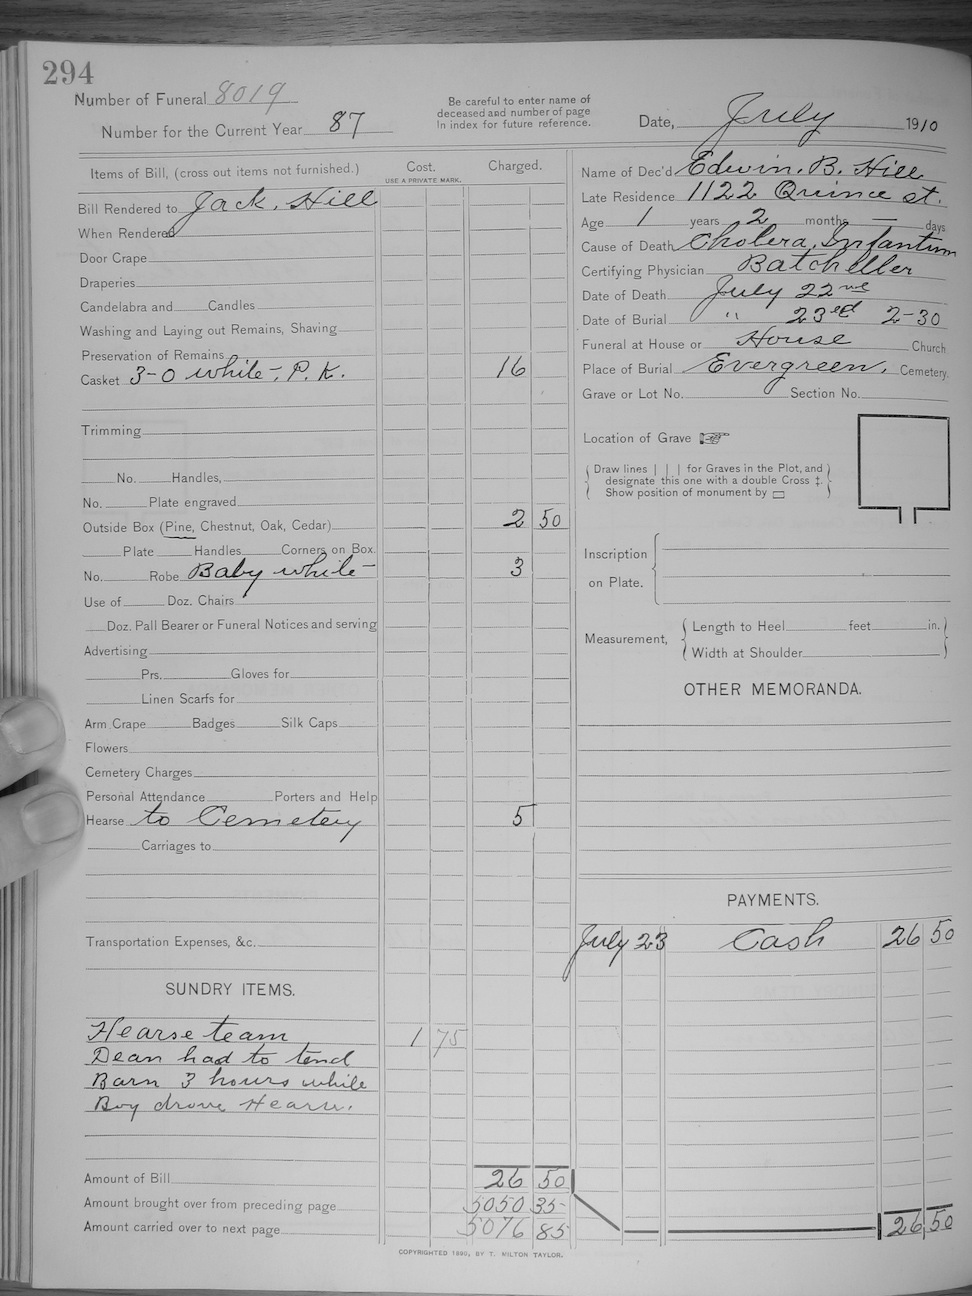 294
Number of Funeral 8019
Number for the Current Year 87
Be careful to enter name of
deceased and number of page
in index for future reference.
Date, July 1910
Items of Bill, (cross out items not furnished.) Cost. Charged.
USE A PRIVATE MARK.
Bill Rendered to Jack. Hill
When Rendered
Door Crape
Draperies
Candelabra and Candles
Washing and Laying out Remains, Shaving
Preservation of Remains
Casket 3-0 white-, P.K. 16
Trimming
No. Handles,
No. Plate engraved
Outside Box (Pine, Chestnut, Oak, Cedar) 2 50
Plate Handles Corners on Box.
No. Robe Baby white- 3
Use of Doz. Chairs
Doz. Pall Bearer or Funeral Notices and serving
Advertising
Prs. Gloves for
Linen Scarfs for
Arm Crape Badges Silk Caps
Flowers
Cemetery Charges
Personal Attendance Porters and Help
Hearse to Cemetery 5
Carriages to
Transportation Expenses, &c.
SUNDRY ITEMS.
Hearse team 1 75
Dean had to tend
Barn 3 hours while
Boy drove Hearse.
Amount of Bill 26 50
Amount brought over from preceding page 5050 35
Amount carried over to next page 5076 85
Name of Dec'd Edwin. B. Hill
Late Residence 1122 Quince st.
Age 1 years 2 months — days
Cause of Death Cholera, Infantum
Certifying Physician Batcheller
Date of Death July 22nd
Date of Burial " 23ed 2-30
Funeral at House or House Church
Place of Burial Evergreen. Cemetery.
Grave or Lot No. Section No.
Location of Grave
Draw lines | | | for Graves in the Plot, and
designate this one with a double Cross ‡.
Show position of monument by ▭
Inscription
on Plate.
Measurement, Length to Heel feet in.
Width at Shoulder
OTHER MEMORANDA.
PAYMENTS.
July 23 Cash 26 50
26 50
COPYRIGHTED 1890, BY T. MILTON TAYLOR.